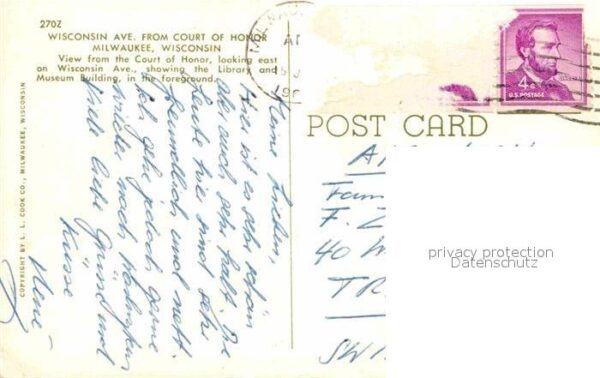 270Z
WISCONSIN AVE. FROM COURT OF HONOR
MILWAUKEE, WISCONSIN
View from the Court of Honor, looking east
on Wisconsin Ave., showing the Library and
Museum Building, in the foreground.
COPYRIGHT BY L. L. COOK CO., MILWAUKEE, WISCONSIN
Meine Lieben,
Hier ist es sehr schön
aber auch sehr kalt. Die
Leute hier sind sehr
freundlich und nett.
Ich gehe jedoch gerne
wieder nach
Viele liebe Grüsse und
Küsse
René
4¢
U.S. POSTAGE
POST CARD
Fam
F. Z
40 W
TR
SWI
privacy protection
Datenschutz